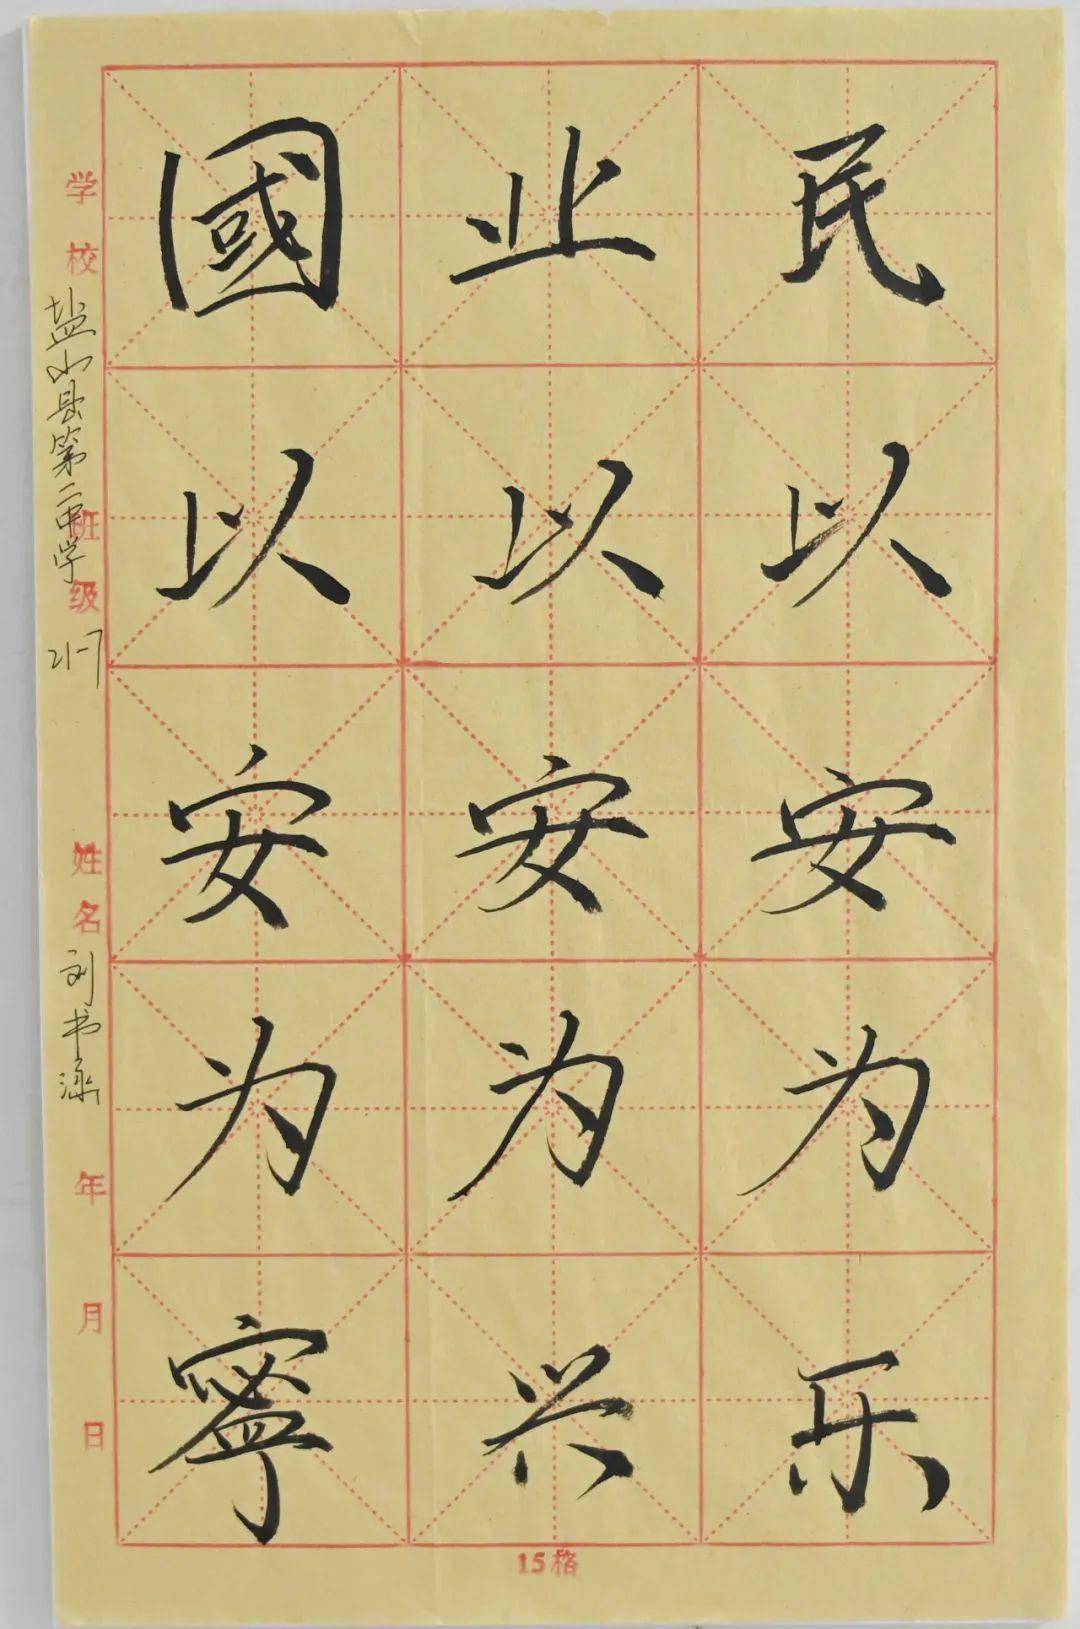 民以安为乐
业以安为兴
國以安为寧
学校 盐山县第二中学
班级 21-7
姓名 刘书
年 月 日
15格